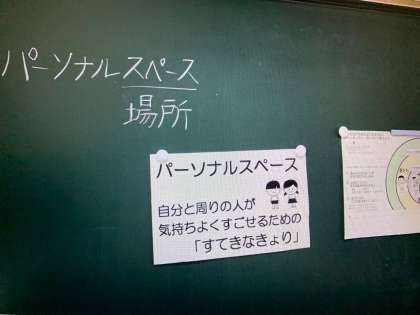 パーソナルスペース
場所
パーソナルスペース
自分と周りの人が
気持ちよくすごせるための
「すてきなきょり」